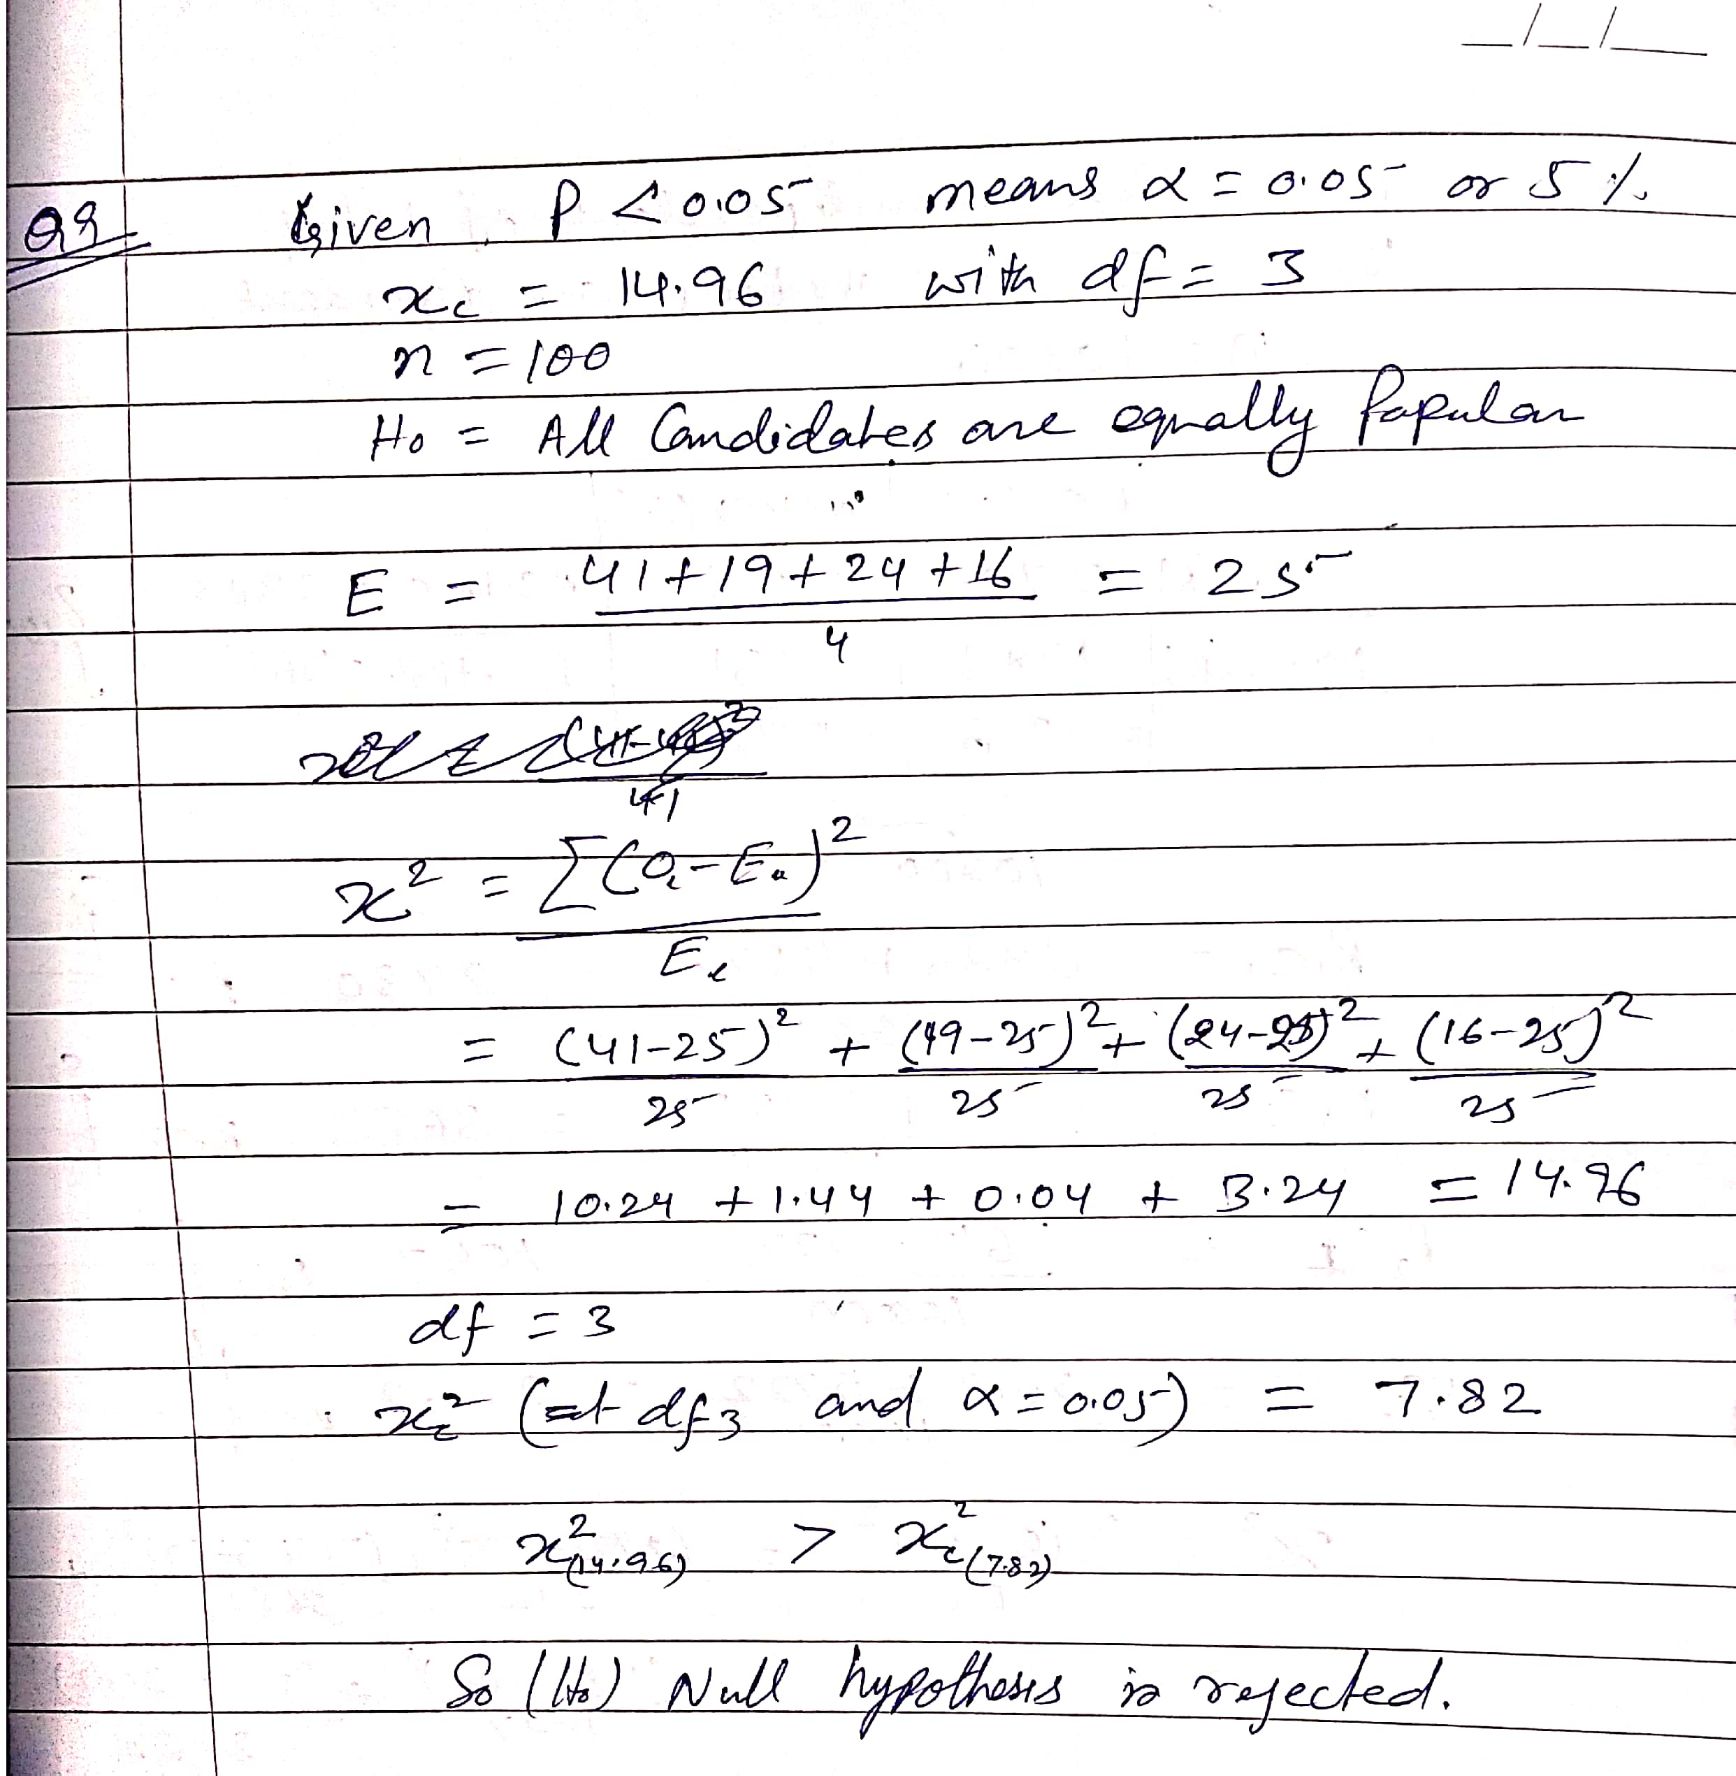 _/_/__
Q9 Given P < 0.05 means α = 0.05 or 5 %
x_c = 14.96 with df = 3
n = 100
Ho = All Candidates are equally Papular
E = 41+19+24+16 = 25
4
41
x² = Σ(O_i - E_i)²
E_i
= (41-25)² + (19-25)² + (24-25)² + (16-25)²
25 25 25 25
= 10.24 + 1.44 + 0.04 + 3.24 = 14.96
df = 3
x_c² (at df 3 and α = 0.05) = 7.82
x²(14.96) > x_c²(7.82)
So (Ho) Null hypothesis is rejected.